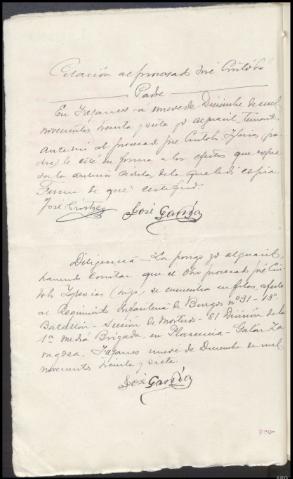 Citación al procesado José Cristóbal
Padre
En Fajanes a nueve de Diciembre de mil
novecientos treinta y siete yo alguacil teniendo
al procesado José Cristobal Iglesias, pa-
dre, le cité en forma a los efectos que expre-
sa la anterior cédula, de la que le di copia
Firma de que certifico
José Cristobal José García
Diligencia - La pongo yo alguacil,
haciendo constar que el otro procesado José Cris-
tobal Iglesias (hijo), se encuentra en filas, afecto
al Regimiento Infantería de Burgos nº 31 - 18º
Batallón - Sección de Morteros - 81 División de la
1ª media Brigada, en Plasencia -
nueve de Diciembre de mil
novecientos treinta y siete
José García